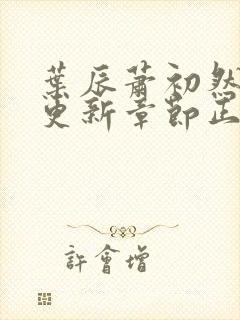 葉辰蕭初然
更新章節正
許會增